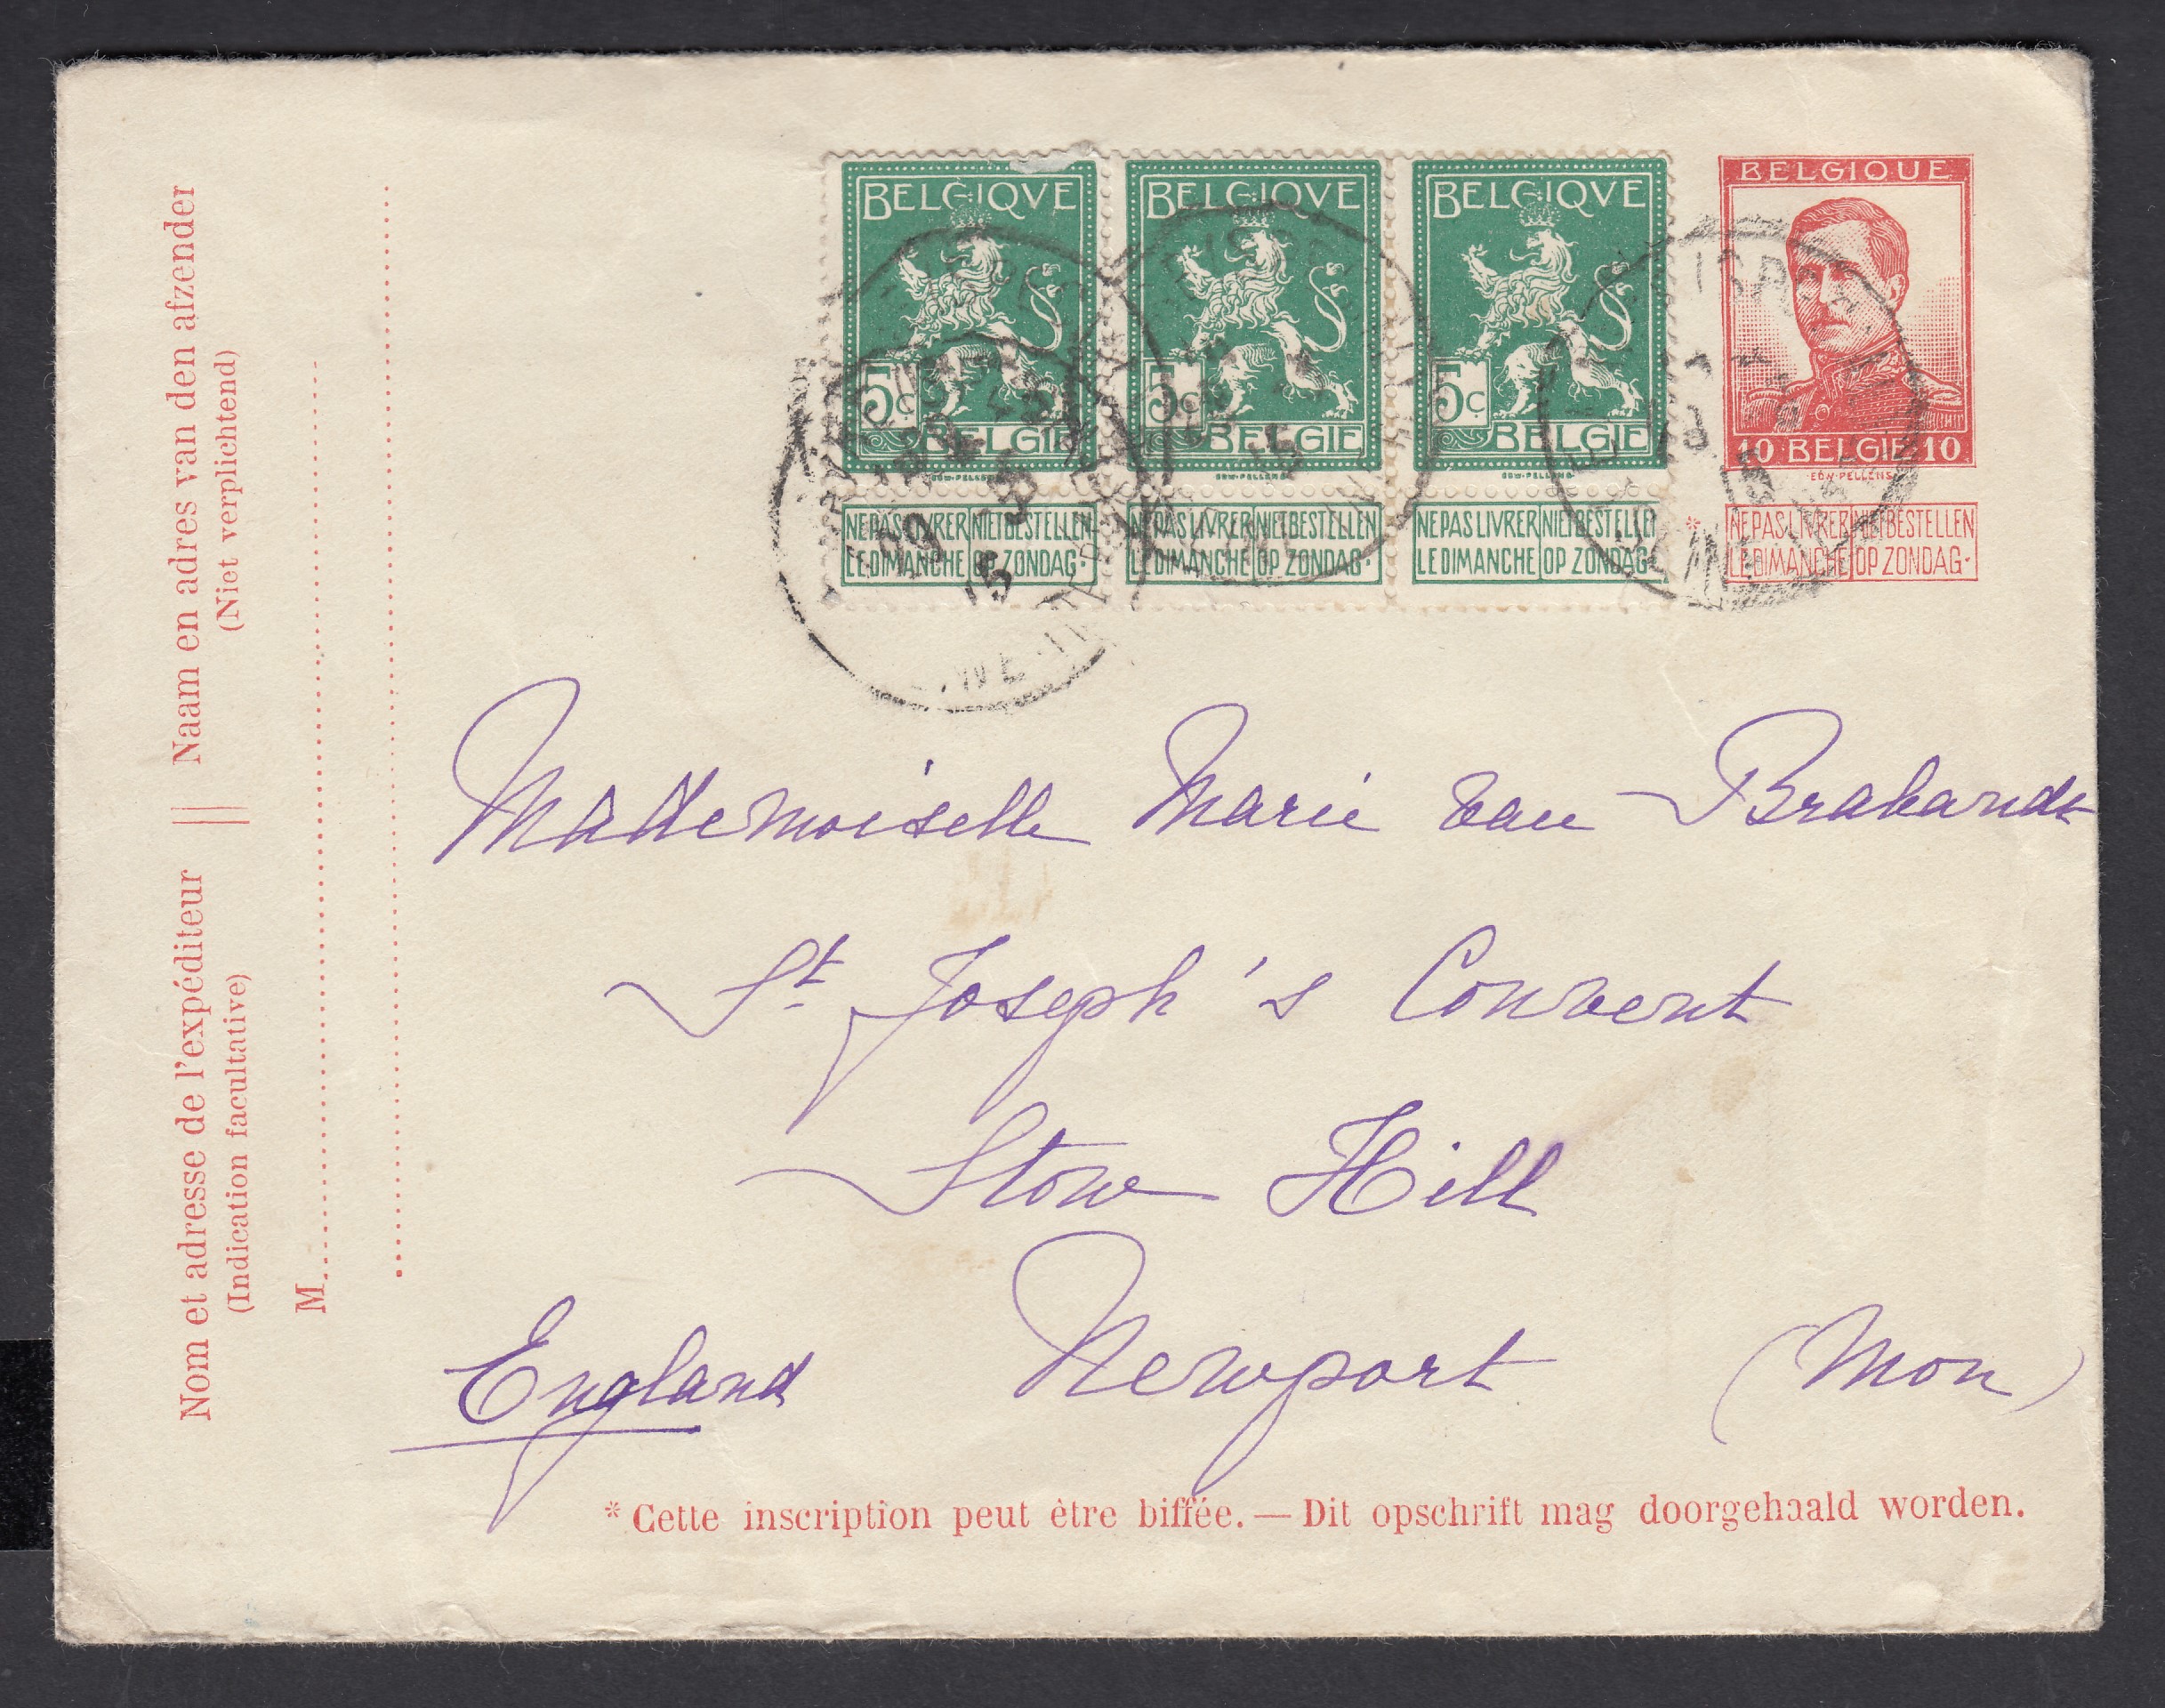 BELGIQVE
5c
BELGIE
EDW·PELLENS
NE PAS LIVRER NIET BESTELLEN
LE DIMANCHE OP ZONDAG·
BELGIQVE
5c
BELGIE
EDW·PELLENS
NE PAS LIVRER NIET BESTELLEN
LE DIMANCHE OP ZONDAG·
BELGIQVE
5c
BELGIE
EDW·PELLENS
NE PAS LIVRER NIET BESTELLEN
LE DIMANCHE OP ZONDAG·
BELGIQUE
10 BELGIE 10
EDW·PELLENS
* NE PAS LIVRER NIET BESTELLEN
LE DIMANCHE OP ZONDAG·
Nom et adresse de l'expéditeur || Naam en adres van den afzender
(Indication facultative) (Niet verplichtend)
M
Mademoiselle Marie van Brabandt
St Joseph's Convent
Stow Hill
England Newport (Mon)
* Cette inscription peut être biffée. — Dit opschrift mag doorgehaald worden.